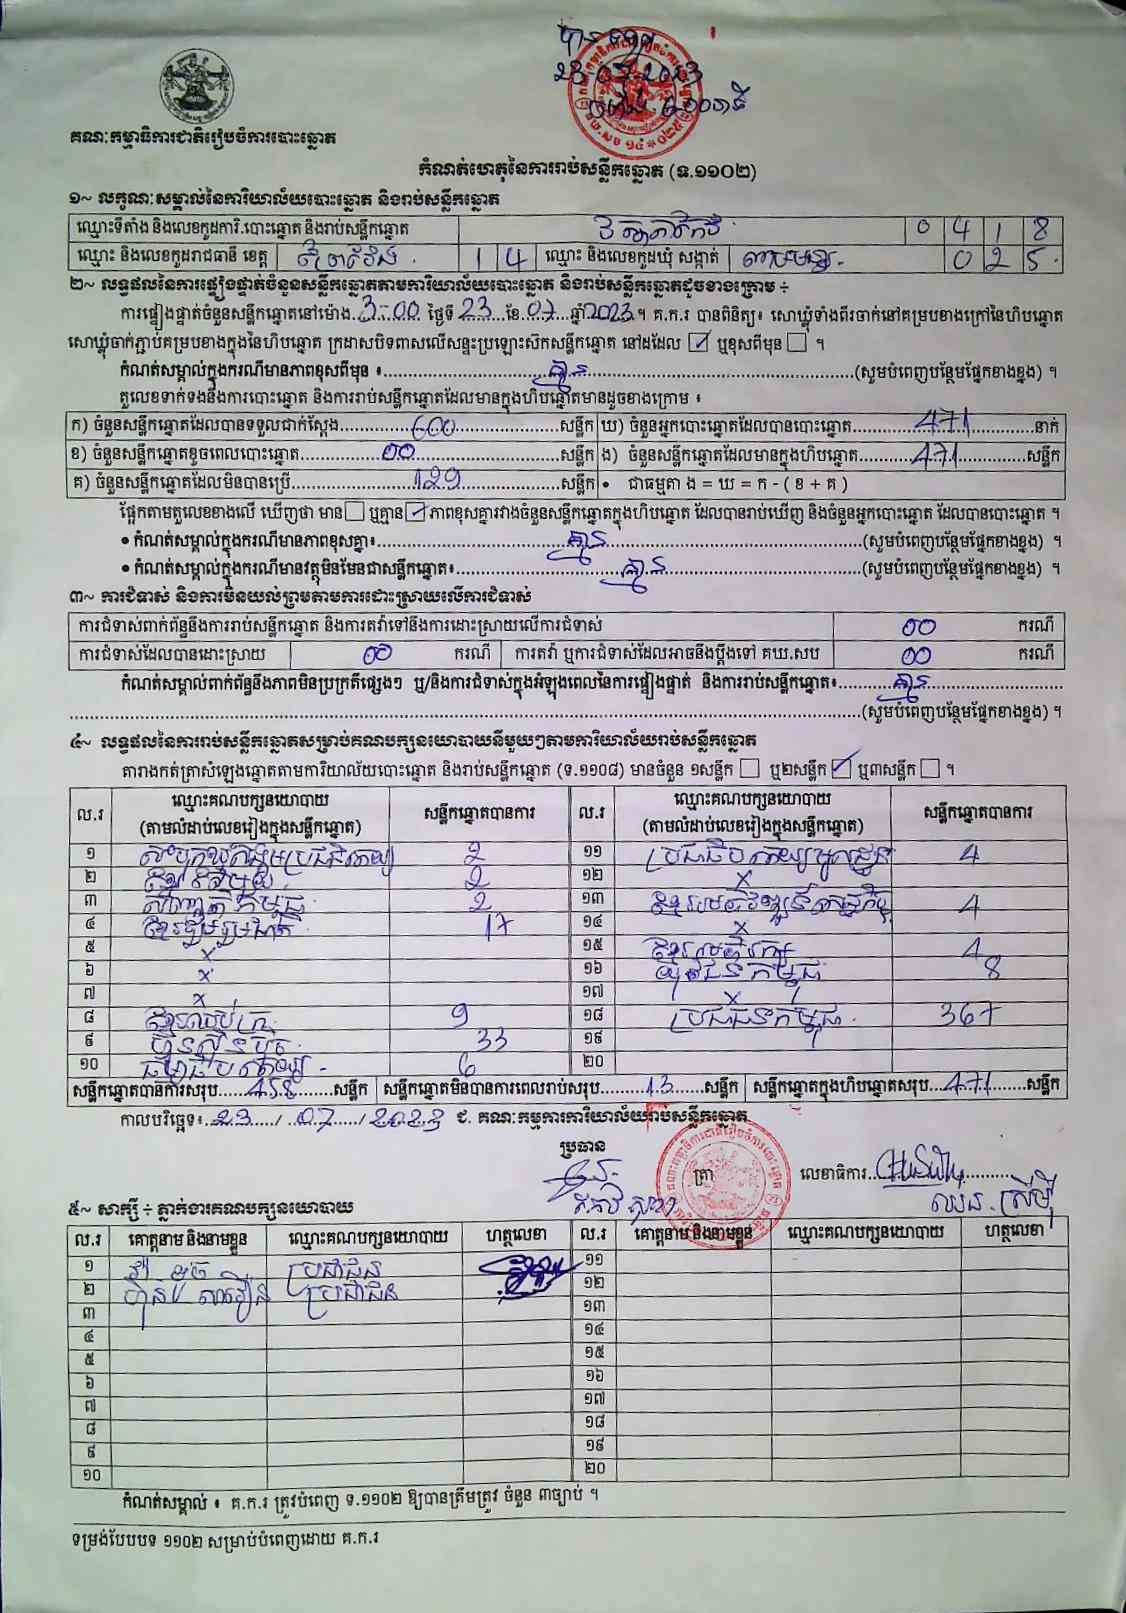 បានទទួល
23-07-2023
គណៈកម្មាធិការជាតិរៀបចំការបោះឆ្នោត
កំណត់ហេតុនៃការរាប់សន្លឹកឆ្នោត (ទ.១១០២)
១~ លក្ខណៈសម្គាល់នៃការិយាល័យបោះឆ្នោត និងរាប់សន្លឹកឆ្នោត
ឈ្មោះទីតាំង និងលេខកូដការិ.បោះឆ្នោត និងរាប់សន្លឹកឆ្នោត 0 4 1 8
ឈ្មោះ និងលេខកូដរាជធានី ខេត្ត ព្រៃវែង 1 4 ឈ្មោះ និងលេខកូដឃុំ សង្កាត់ 0 2 5
២~ លទ្ធផលនៃការផ្ទៀងផ្ទាត់ចំនួនសន្លឹកឆ្នោតតាមការិយាល័យបោះឆ្នោត និងរាប់សន្លឹកឆ្នោតដូចខាងក្រោម ÷
ការផ្ទៀងផ្ទាត់ចំនួនសន្លឹកឆ្នោតនៅម៉ោង 3:00 ថ្ងៃទី 23 ខែ 07 ឆ្នាំ 2023 ។ គ.ក.រ បានពិនិត្យ៖ សោឃ្លុំទាំងពីរចាក់នៅគម្របខាងក្រៅនៃហិបឆ្នោត
សោឃ្លុំចាក់ភ្ជាប់គម្របខាងក្នុងនៃហិបឆ្នោត ក្រដាសបិទពាសលើសន្ទះប្រឡោះស៊កសន្លឹកឆ្នោត នៅដដែល ☑ ឬខុសពីមុន ☐ ។
កំណត់សម្គាល់ក្នុងករណីមានភាពខុសពីមុន ៖ គ្មាន (សូមបំពេញបន្ថែមផ្នែកខាងខ្នង) ។
តួលេខទាក់ទងនឹងការបោះឆ្នោត និងការរាប់សន្លឹកឆ្នោតដែលមានក្នុងហិបឆ្នោតមានដូចខាងក្រោម ៖
ក) ចំនួនសន្លឹកឆ្នោតដែលបានទទួលជាក់ស្តែង 600 សន្លឹក ឃ) ចំនួនអ្នកបោះឆ្នោតដែលបានបោះឆ្នោត 471 នាក់
ខ) ចំនួនសន្លឹកឆ្នោតខូចពេលបោះឆ្នោត 00 សន្លឹក ង) ចំនួនសន្លឹកឆ្នោតដែលមានក្នុងហិបឆ្នោត 471 សន្លឹក
គ) ចំនួនសន្លឹកឆ្នោតដែលមិនបានប្រើ 129 សន្លឹក • ជាធម្មតា ង = ឃ = ក - ( ខ + គ )
ផ្អែកតាមតួលេខខាងលើ ឃើញថា មាន ☐ ឬគ្មាន ☑ ភាពខុសគ្នារវាងចំនួនសន្លឹកឆ្នោតក្នុងហិបឆ្នោត ដែលបានរាប់ឃើញ និងចំនួនអ្នកបោះឆ្នោត ដែលបានបោះឆ្នោត ។
• កំណត់សម្គាល់ក្នុងករណីមានភាពខុសគ្នា៖ គ្មាន (សូមបំពេញបន្ថែមផ្នែកខាងខ្នង) ។
• កំណត់សម្គាល់ក្នុងករណីមានវត្ថុមិនមែនជាសន្លឹកឆ្នោត៖ គ្មាន (សូមបំពេញបន្ថែមផ្នែកខាងខ្នង) ។
៣~ ការជំទាស់ និងការមិនយល់ព្រមតាមការដោះស្រាយលើការជំទាស់
ការជំទាស់ពាក់ព័ន្ធនឹងការរាប់សន្លឹកឆ្នោត និងការតវ៉ាទៅនឹងការដោះស្រាយលើការជំទាស់ 00 ករណី
ការជំទាស់ដែលបានដោះស្រាយ 00 ករណី ការតវ៉ា ឬការជំទាស់ដែលអាចនឹងប្តឹងទៅ គឃ.សប 00 ករណី
កំណត់សម្គាល់ពាក់ព័ន្ធនឹងភាពមិនប្រក្រតីផ្សេងៗ ឬ/និងការជំទាស់ក្នុងអំឡុងពេលនៃការផ្ទៀងផ្ទាត់ និងការរាប់សន្លឹកឆ្នោត៖ គ្មាន
(សូមបំពេញបន្ថែមផ្នែកខាងខ្នង) ។
៤~ លទ្ធផលនៃការរាប់សន្លឹកឆ្នោតសម្រាប់គណបក្សនយោបាយនីមួយៗតាមការិយាល័យរាប់សន្លឹកឆ្នោត
តារាងកត់ត្រាសំឡេងឆ្នោតតាមការិយាល័យបោះឆ្នោត និងរាប់សន្លឹកឆ្នោត (ទ.១១០៨) មានចំនួន ១សន្លឹក ☐ ឬ២សន្លឹក ☑ ឬ៣សន្លឹក ☐ ។
ល.រ ឈ្មោះគណបក្សនយោបាយ (តាមលំដាប់លេខរៀងក្នុងសន្លឹកឆ្នោត) សន្លឹកឆ្នោតបានការ ល.រ ឈ្មោះគណបក្សនយោបាយ (តាមលំដាប់លេខរៀងក្នុងសន្លឹកឆ្នោត) សន្លឹកឆ្នោតបានការ
១ សំបុកឃ្មុំសង្គមប្រជាធិបតេយ្យ 2 ១១ ប្រជាធិបតេយ្យមូលដ្ឋាន 4
២ ខ្មែរតែមួយ 2 ១២ x
៣ សញ្ជាតិកម្ពុជា 2 ១៣ ខ្មែរអភិវឌ្ឍន៍សេដ្ឋកិច្ច 4
៤ ខ្មែររួបរួមជាតិ 17 ១៤ x
៥ x ១៥ ខ្មែរអភិរក្ស 4
៦ x ១៦ យុវជនកម្ពុជា 8
៧ x ១៧ x
៨ ខ្មែរឈប់ក្រ 9 ១៨ ប្រជាជនកម្ពុជា 367
៩ ហ៊្វុនស៊ិនប៉ិច 33 ១៩
១០ ធម្មាធិបតេយ្យ 6 ២០
សន្លឹកឆ្នោតបានការសរុប 458 សន្លឹក សន្លឹកឆ្នោតមិនបានការពេលរាប់សរុប 13 សន្លឹក សន្លឹកឆ្នោតក្នុងហិបឆ្នោតសរុប 471 សន្លឹក
កាលបរិច្ឆេទ៖ 23 / 07 / 2023 ជ. គណៈកម្មការការិយាល័យរាប់សន្លឹកឆ្នោត
ប្រធាន
ត្រា លេខាធិការ
៥~ សាក្សី ÷ ភ្នាក់ងារគណបក្សនយោបាយ
ល.រ គោត្តនាម និងនាមខ្លួន ឈ្មោះគណបក្សនយោបាយ ហត្ថលេខា ល.រ គោត្តនាម និងនាមខ្លួន ឈ្មោះគណបក្សនយោបាយ ហត្ថលេខា
១ ប្រជាជន ១១
២ ប្រជាជន ១២
៣ ១៣
៤ ១៤
៥ ១៥
៦ ១៦
៧ ១៧
៨ ១៨
៩ ១៩
១០ ២០
កំណត់សម្គាល់ ៖ គ.ក.រ ត្រូវបំពេញ ទ.១១០២ ឱ្យបានត្រឹមត្រូវ ចំនួន ៣ច្បាប់ ។
ទម្រង់បែបបទ ១១០២ សម្រាប់បំពេញដោយ គ.ក.រ